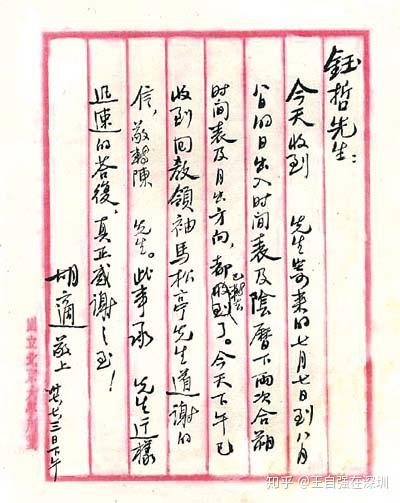 鈺哲先生:
今天收到 先生寄来的七月七日到八月
八日的日出入时间表及陰曆下兩次合朔
时间表及月出方向,都收到了。今天下午已
收到回教領袖馬松亭先生道謝的
信,敬轉陳 先生。此事承 先生這樣
迅速的答復,真正感谢之至!
胡適敬上 卅七三日下午
國立北京大學用箋
知乎 @王自强在深圳